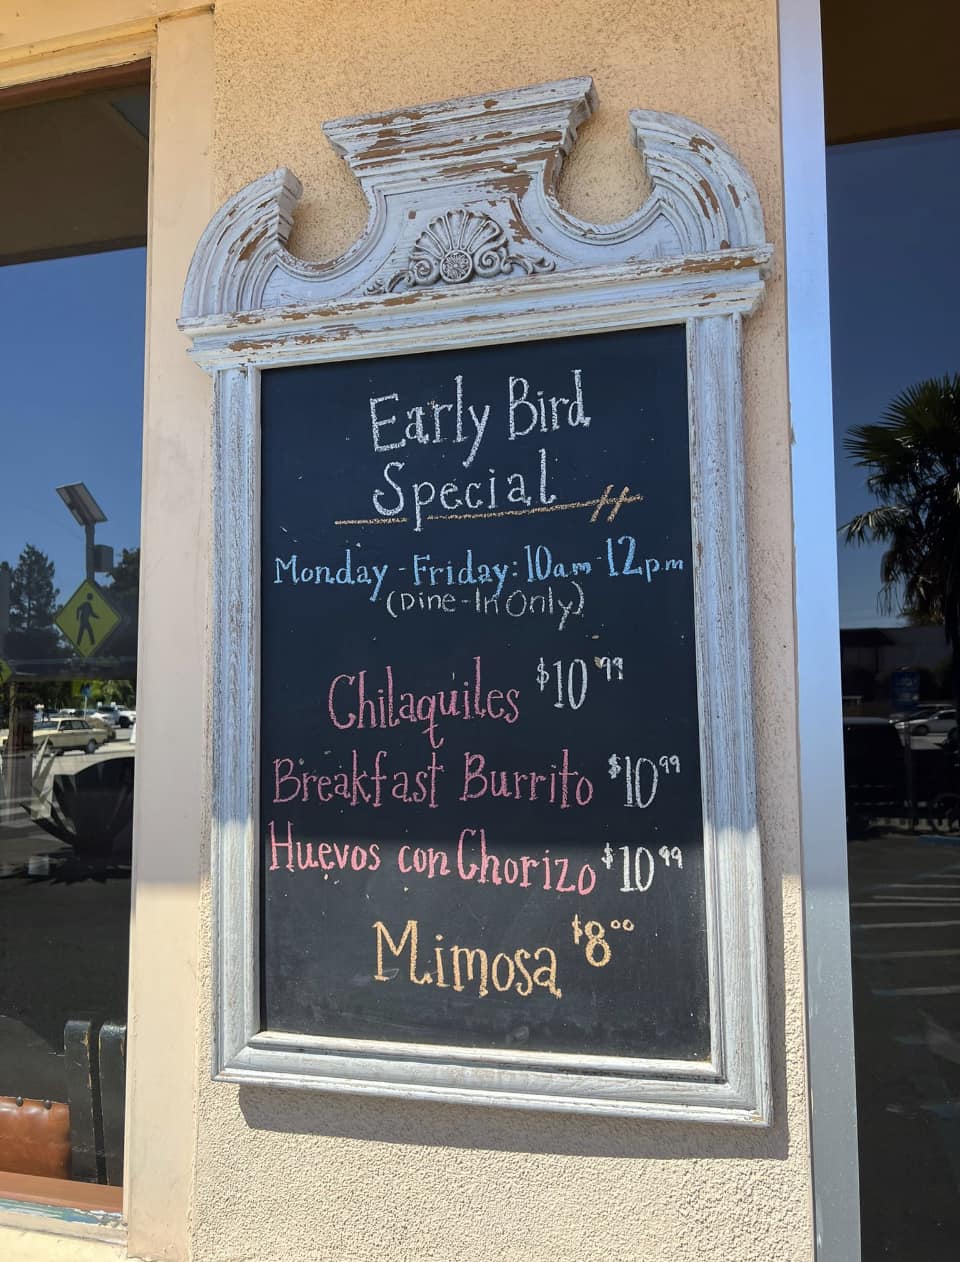 Early Bird
Special
Monday - Friday: 10am - 12pm
(Dine-In Only)
Chilaquiles $10 99
Breakfast Burrito $10 99
Huevos con Chorizo $10 99
Mimosa $8 00